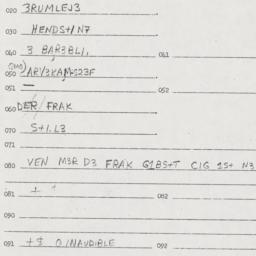 020 3RUMLEJ3
030 HENDS+/N7
040 3 BAR3BLI, 041
050 ARY3KAM-S23F
051 052
060 DER/ FRAK
070 S+1.L3
071
080 VEN M3R D3 FRAK G1BS+T CIG 1S+ N3
081 082
090
091 +$ 0/NAUDIBLE 092